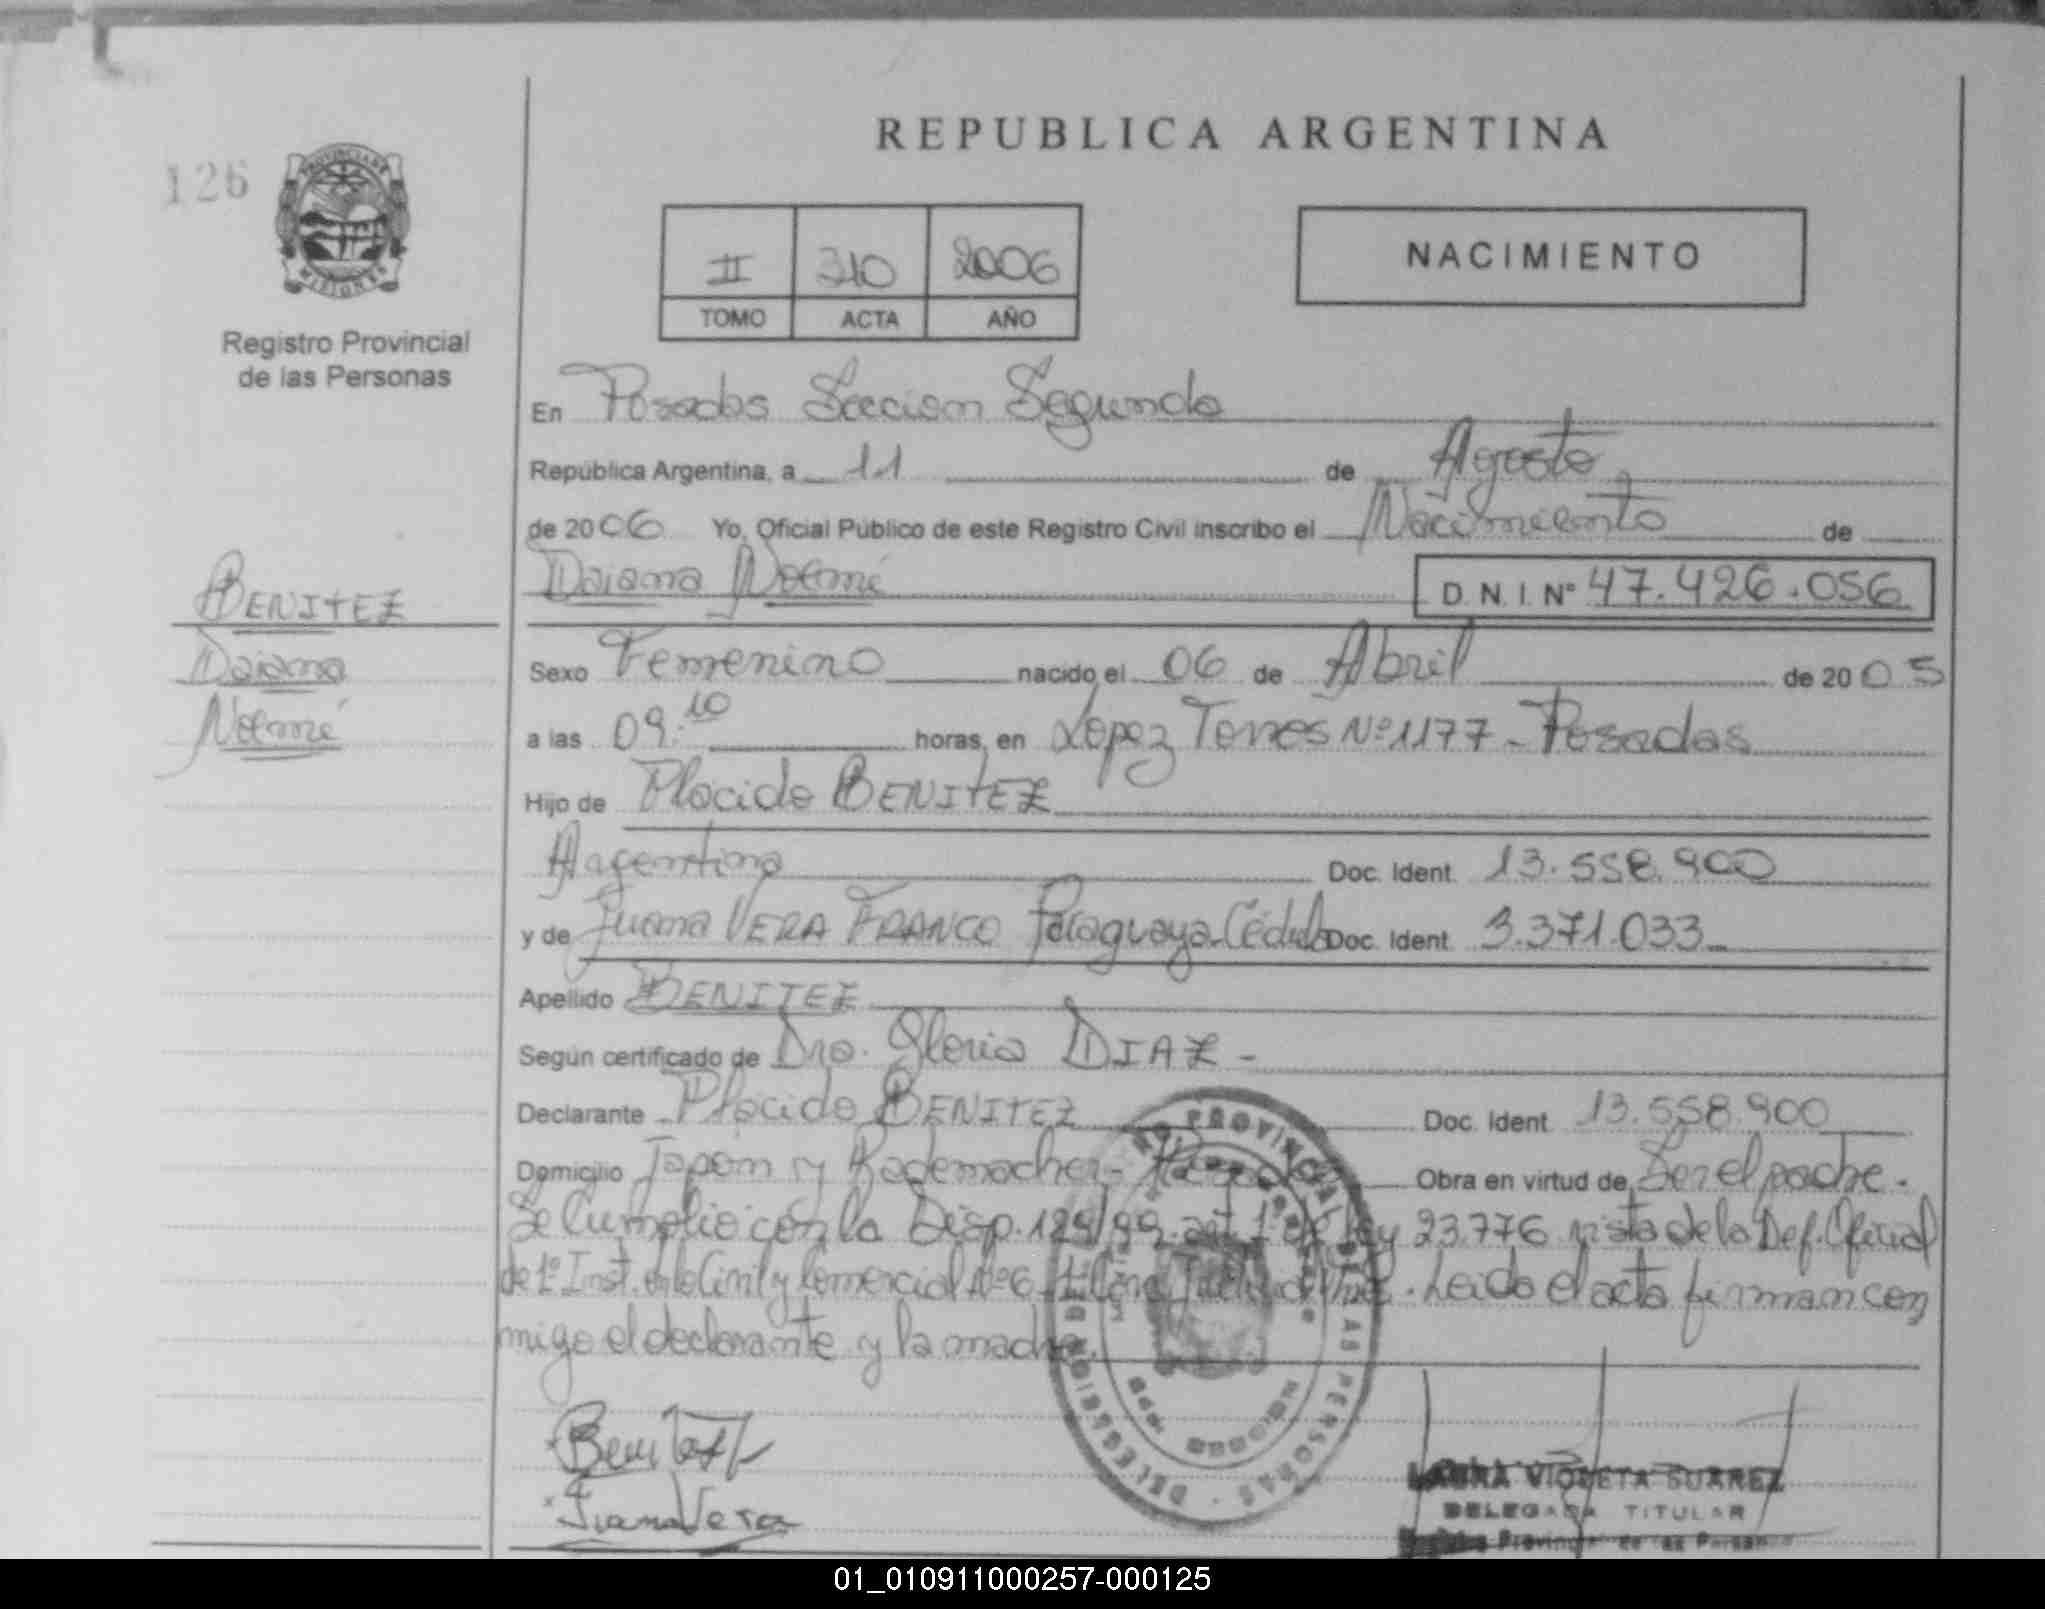 REPUBLICA ARGENTINA
126
PROVINCIA DE
MISIONES
Registro Provincial
de las Personas
II 310 2006
TOMO ACTA AÑO
NACIMIENTO
En Posadas Seccion Segunda
República Argentina, a 11 de Agosto
de 2006 Yo, Oficial Público de este Registro Civil inscribo el Nacimiento de
Daiana Noemí D. N. I. Nº 47.426.056
BENITEZ
Daiana
Noemí
Sexo Femenino nacido el 06 de Abril de 2005
a las 09:10 horas, en Lopez Torres Nº 1177 - Posadas
Hijo de Placido BENITEZ
Argentino Doc. Ident. 13.558.900
y de Juana VERA FRANCO Paraguaya-Cédula Doc. Ident. 3.371.033
Apellido BENITEZ
Según certificado de Dra. Gloria DIAZ -
Declarante Placido BENITEZ Doc. Ident. 13.558.900
Domicilio Japon y Rademacher - Posadas Obra en virtud de Ser el padre.
Se Cumplio con la Disp. 129/99 art 1º de Ley 23.776 vista de la Def. Oficial
de 1º Inst. en lo Civil y Comercial Nº 6 Judicial Mnes. Leido el acta firman con
migo el declarante y la madre.
PROVINCIAL DE LAS PERSONAS
Juana Vera
LAURA VIOLETA SUAREZ
DELEGADA TITULAR
Registro Provincial de las Personas
01_010911000257-000125